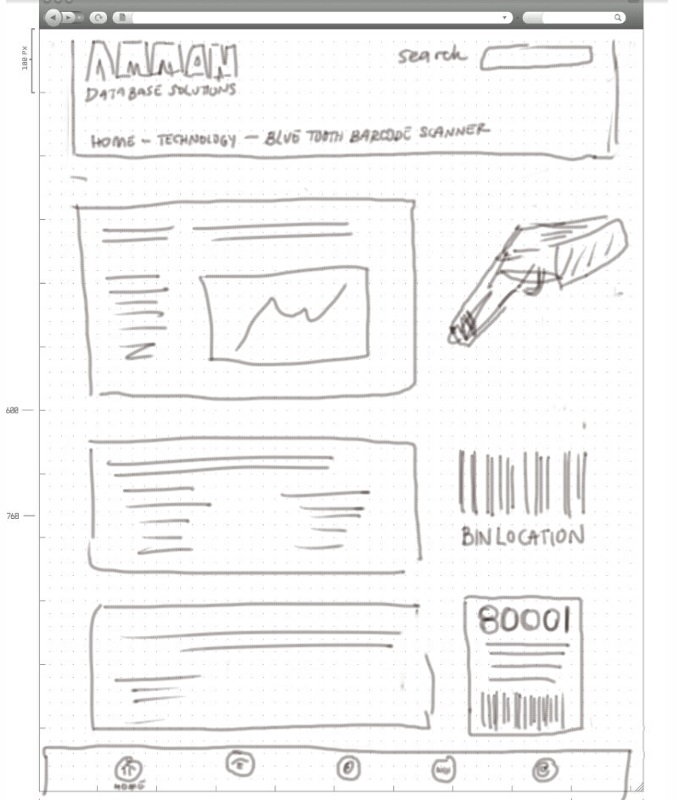 100 PX
search
DATABASE SOLUTIONS
HOME - TECHNOLOGY - BLUE TOOTH BARCODE SCANNER
600
768
BIN LOCATION
80001
HOME